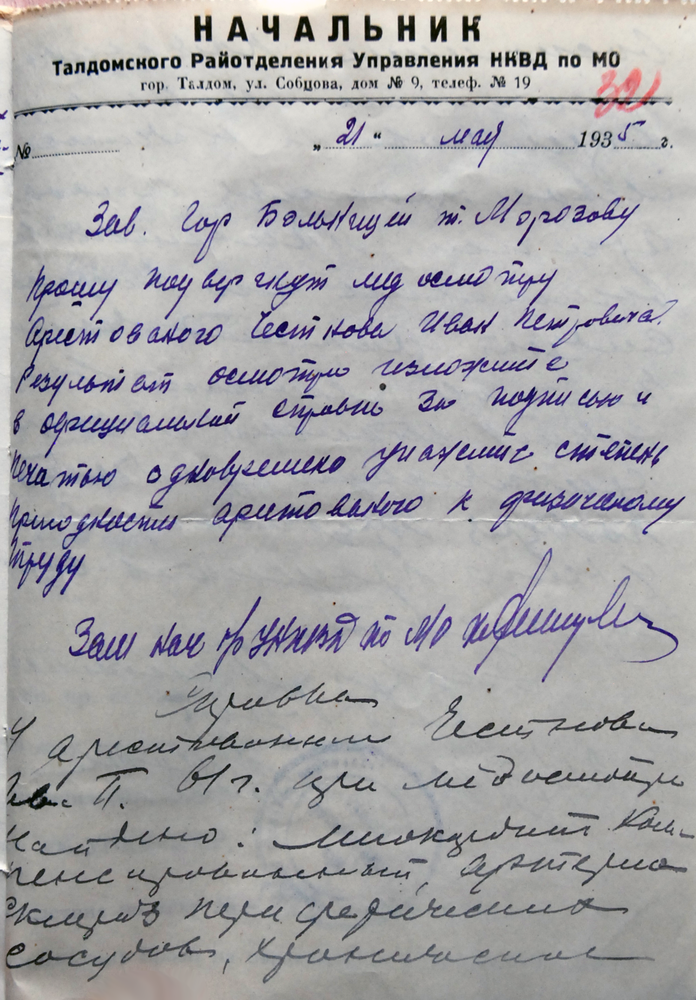 НАЧАЛЬНИК
Талдомского Райотделения Управления НКВД по МО
гор. Талдом, ул. Собцова, дом № 9, телеф. № 19
32
№ „ 21 “ мая 1935 г.
Зав. Гор Больницей т. Морозову
Прошу подвергнут мед осмотру
Арестованого Честнова Иван Петровича.
Результат осмотра изложите
в официальной справке за подписью и
печатью одновремено укажите степень
пригодности арестованого к физическому
труду
Зам нач УНКВД по МО
Справка
У арестованного Честнова
Ив. П. 61 г. при медосмотре
найдено: миокардит ком-
пенсированный, артерио
склероз периферических
сосудов, хронический